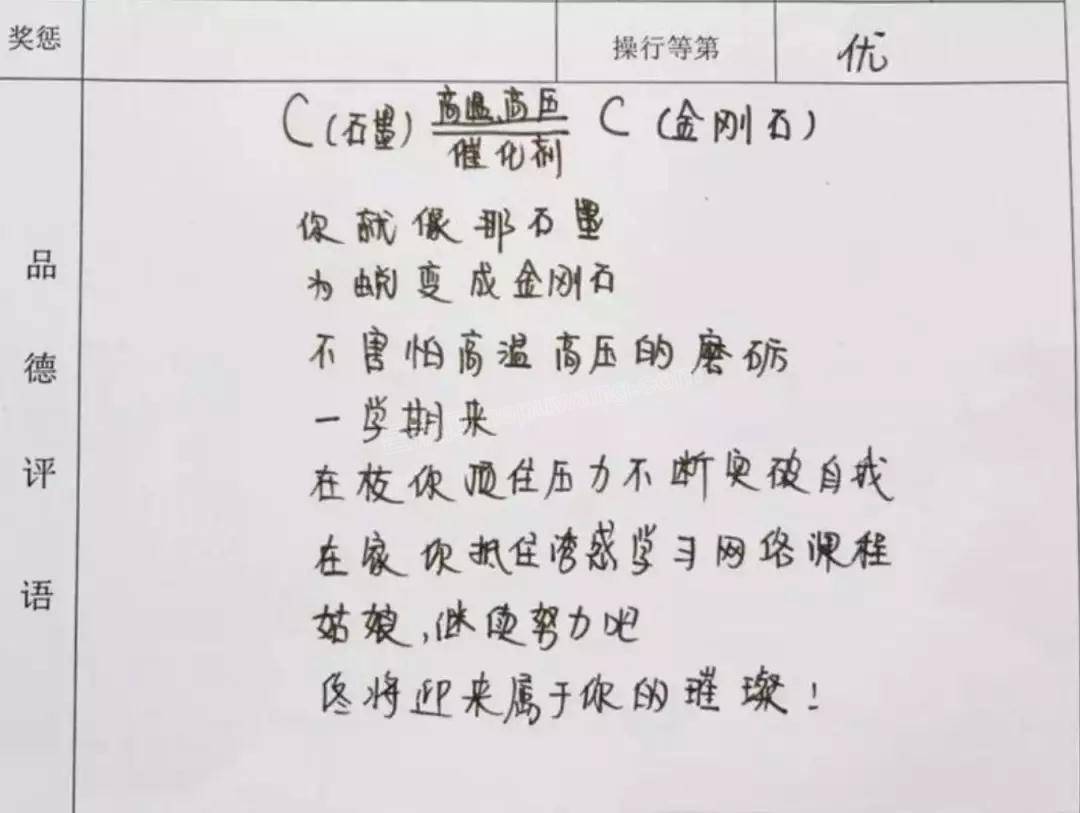 奖惩
操行等第
优
品德评语
C(石墨) 高温、高压 C (金刚石)
催化剂
你就像那石墨
为蜕变成金刚石
不害怕高温高压的磨砺
一学期来
在校你顶住压力不断突破自我
在家你抵住诱惑学习网络课程
姑娘,继续努力吧
终将迎来属于你的璀璨!